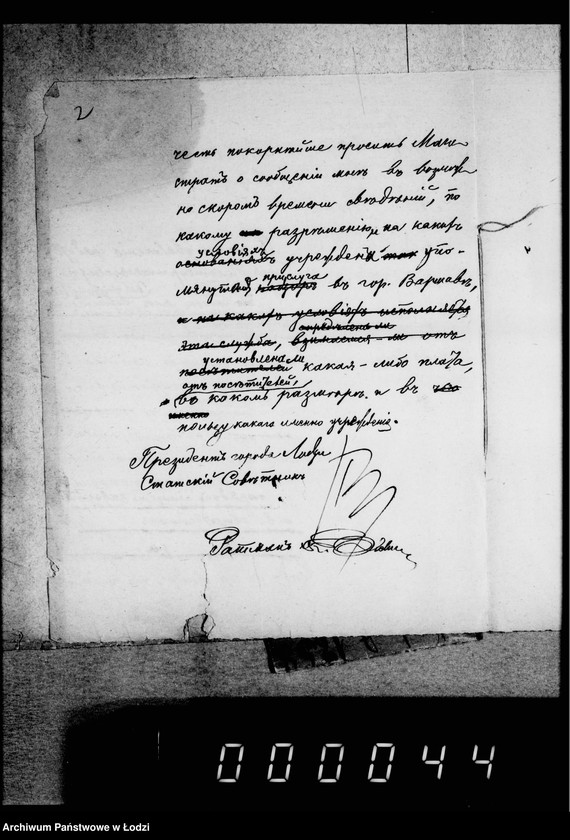 2
честь покорнѣйше просить Маги-
стратъ о сообщеніи мнѣ въ возмож-
но скоромъ времени свѣдѣній, по
какому разрѣшенію и на какихъ
условіяхъ
основаніяхъ учреждена упо-
прислуга
мянутая въ гор. Варшавѣ,
и на какихъ условіяхъ исполняется
опредѣлена ли
эта служба, взимается-ли отъ
установлена ли
посѣтителей какая-либо плата,
отъ посѣтителей,
въ какомъ размѣрѣ и въ
именно
пользу какого именно учрежденія.
Президентъ города Лодзи
Статскій Совѣтникъ
Ратманъ
000044
Archiwum Państwowe w Łodzi